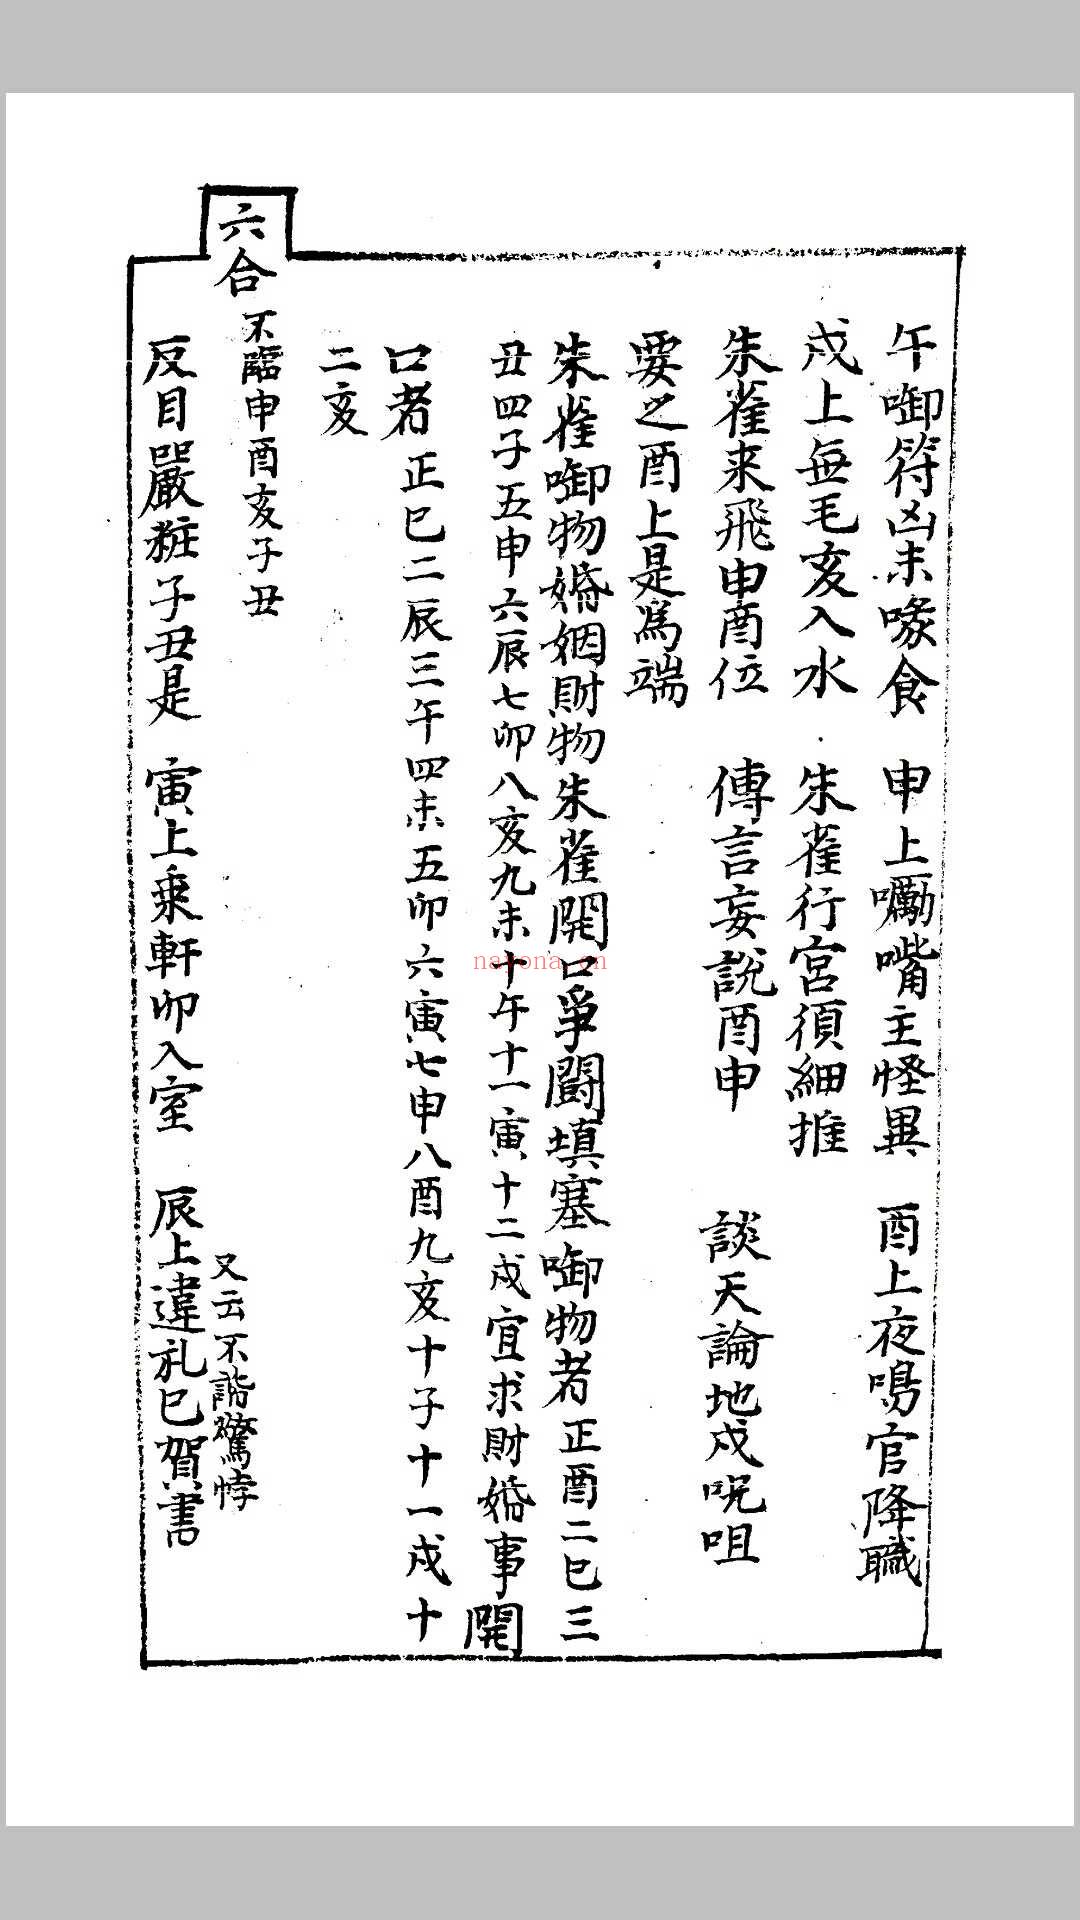 午啣符凶未喙食　申上嘴主怪異　酉上夜鳴官降職
戌上無毛亥入水　朱雀行宮須細推
朱雀来飛申酉位　傳言妄説酉申　談天論地戌呪咀
要之酉上是為端
朱雀啣物婚姻財物朱雀開口爭鬪填塞啣物者正酉二巳三
丑四子五申六辰七卯八亥九未十午十一寅十二戌宜求財婚事開
口者正巳二辰三午四未五卯六寅七申八酉九亥十子十一戌十
二亥
六合 不臨申酉亥子丑
又云不諧驚悖
反目嚴粧子丑是　寅上乗軒卯入室　辰上違礼巳賀書
nayona.cn